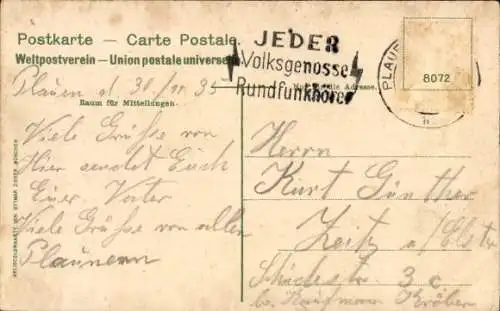 Postkarte — Carte Postale.
Weltpostverein — Union postale universelle
Plauen d. 30/11. 35
Raum für Mitteilungen.
Viele Grüße von
Hier sendet Euch
Euer Vater
Viele Grüße von allen
Plauenern
JEDER
Volksgenosse
Rundfunkhörer
Nur für die Adresse.
PLAUE
8072
Herrn
Kurt Günther
Zeitz a/Elster
3 c.
b. Kaufmann Kröber